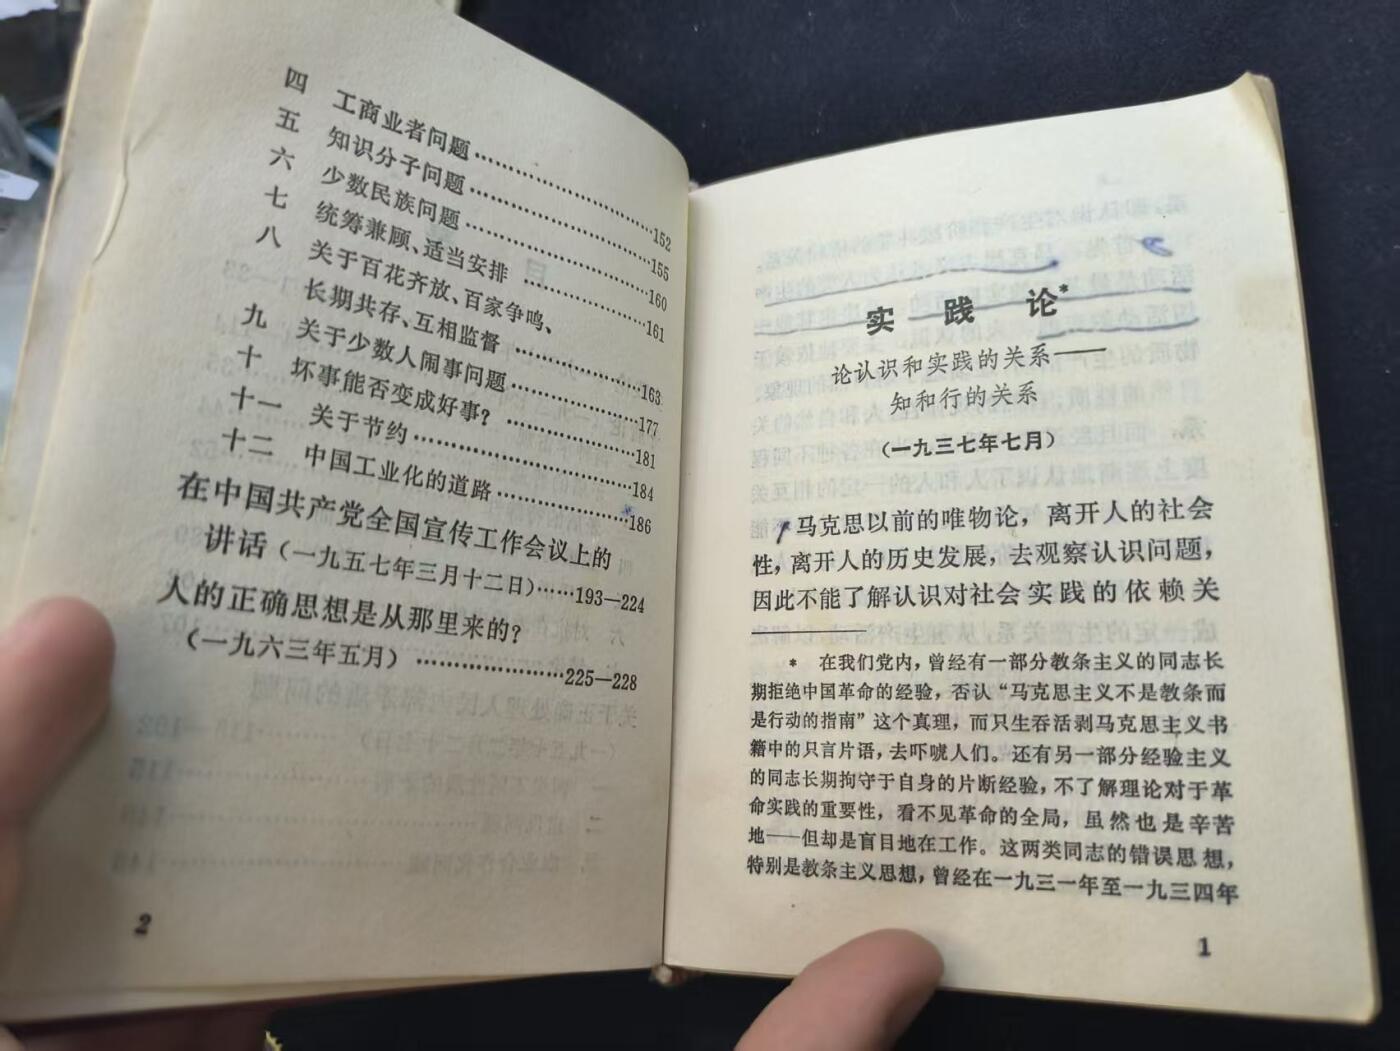 四　工商业者问题……152
五　知识分子问题……155
六　少数民族问题……160
七　统筹兼顾、适当安排……161
八　关于百花齐放、百家争鸣、
长期共存、互相监督……163
九　关于少数人闹事问题……177
十　坏事能否变成好事？……181
十一　关于节约……184
十二　中国工业化的道路……186
在中国共产党全国宣传工作会议上的
讲话（一九五七年三月十二日）……193—224
人的正确思想是从那里来的？
（一九六三年五月）……225—228
2
实践论*
论认识和实践的关系——
知和行的关系
（一九三七年七月）
马克思以前的唯物论，离开人的社会
性，离开人的历史发展，去观察认识问题，
因此不能了解认识对社会实践的依赖关
* 在我们党内，曾经有一部分教条主义的同志长
期拒绝中国革命的经验，否认“马克思主义不是教条而
是行动的指南”这个真理，而只生吞活剥马克思主义书
籍中的只言片语，去吓唬人们。还有另一部分经验主义
的同志长期拘守于自身的片断经验，不了解理论对于革
命实践的重要性，看不见革命的全局，虽然也是辛苦
地——但却是盲目地在工作。这两类同志的错误思想，
特别是教条主义思想，曾经在一九三一年至一九三四年
1